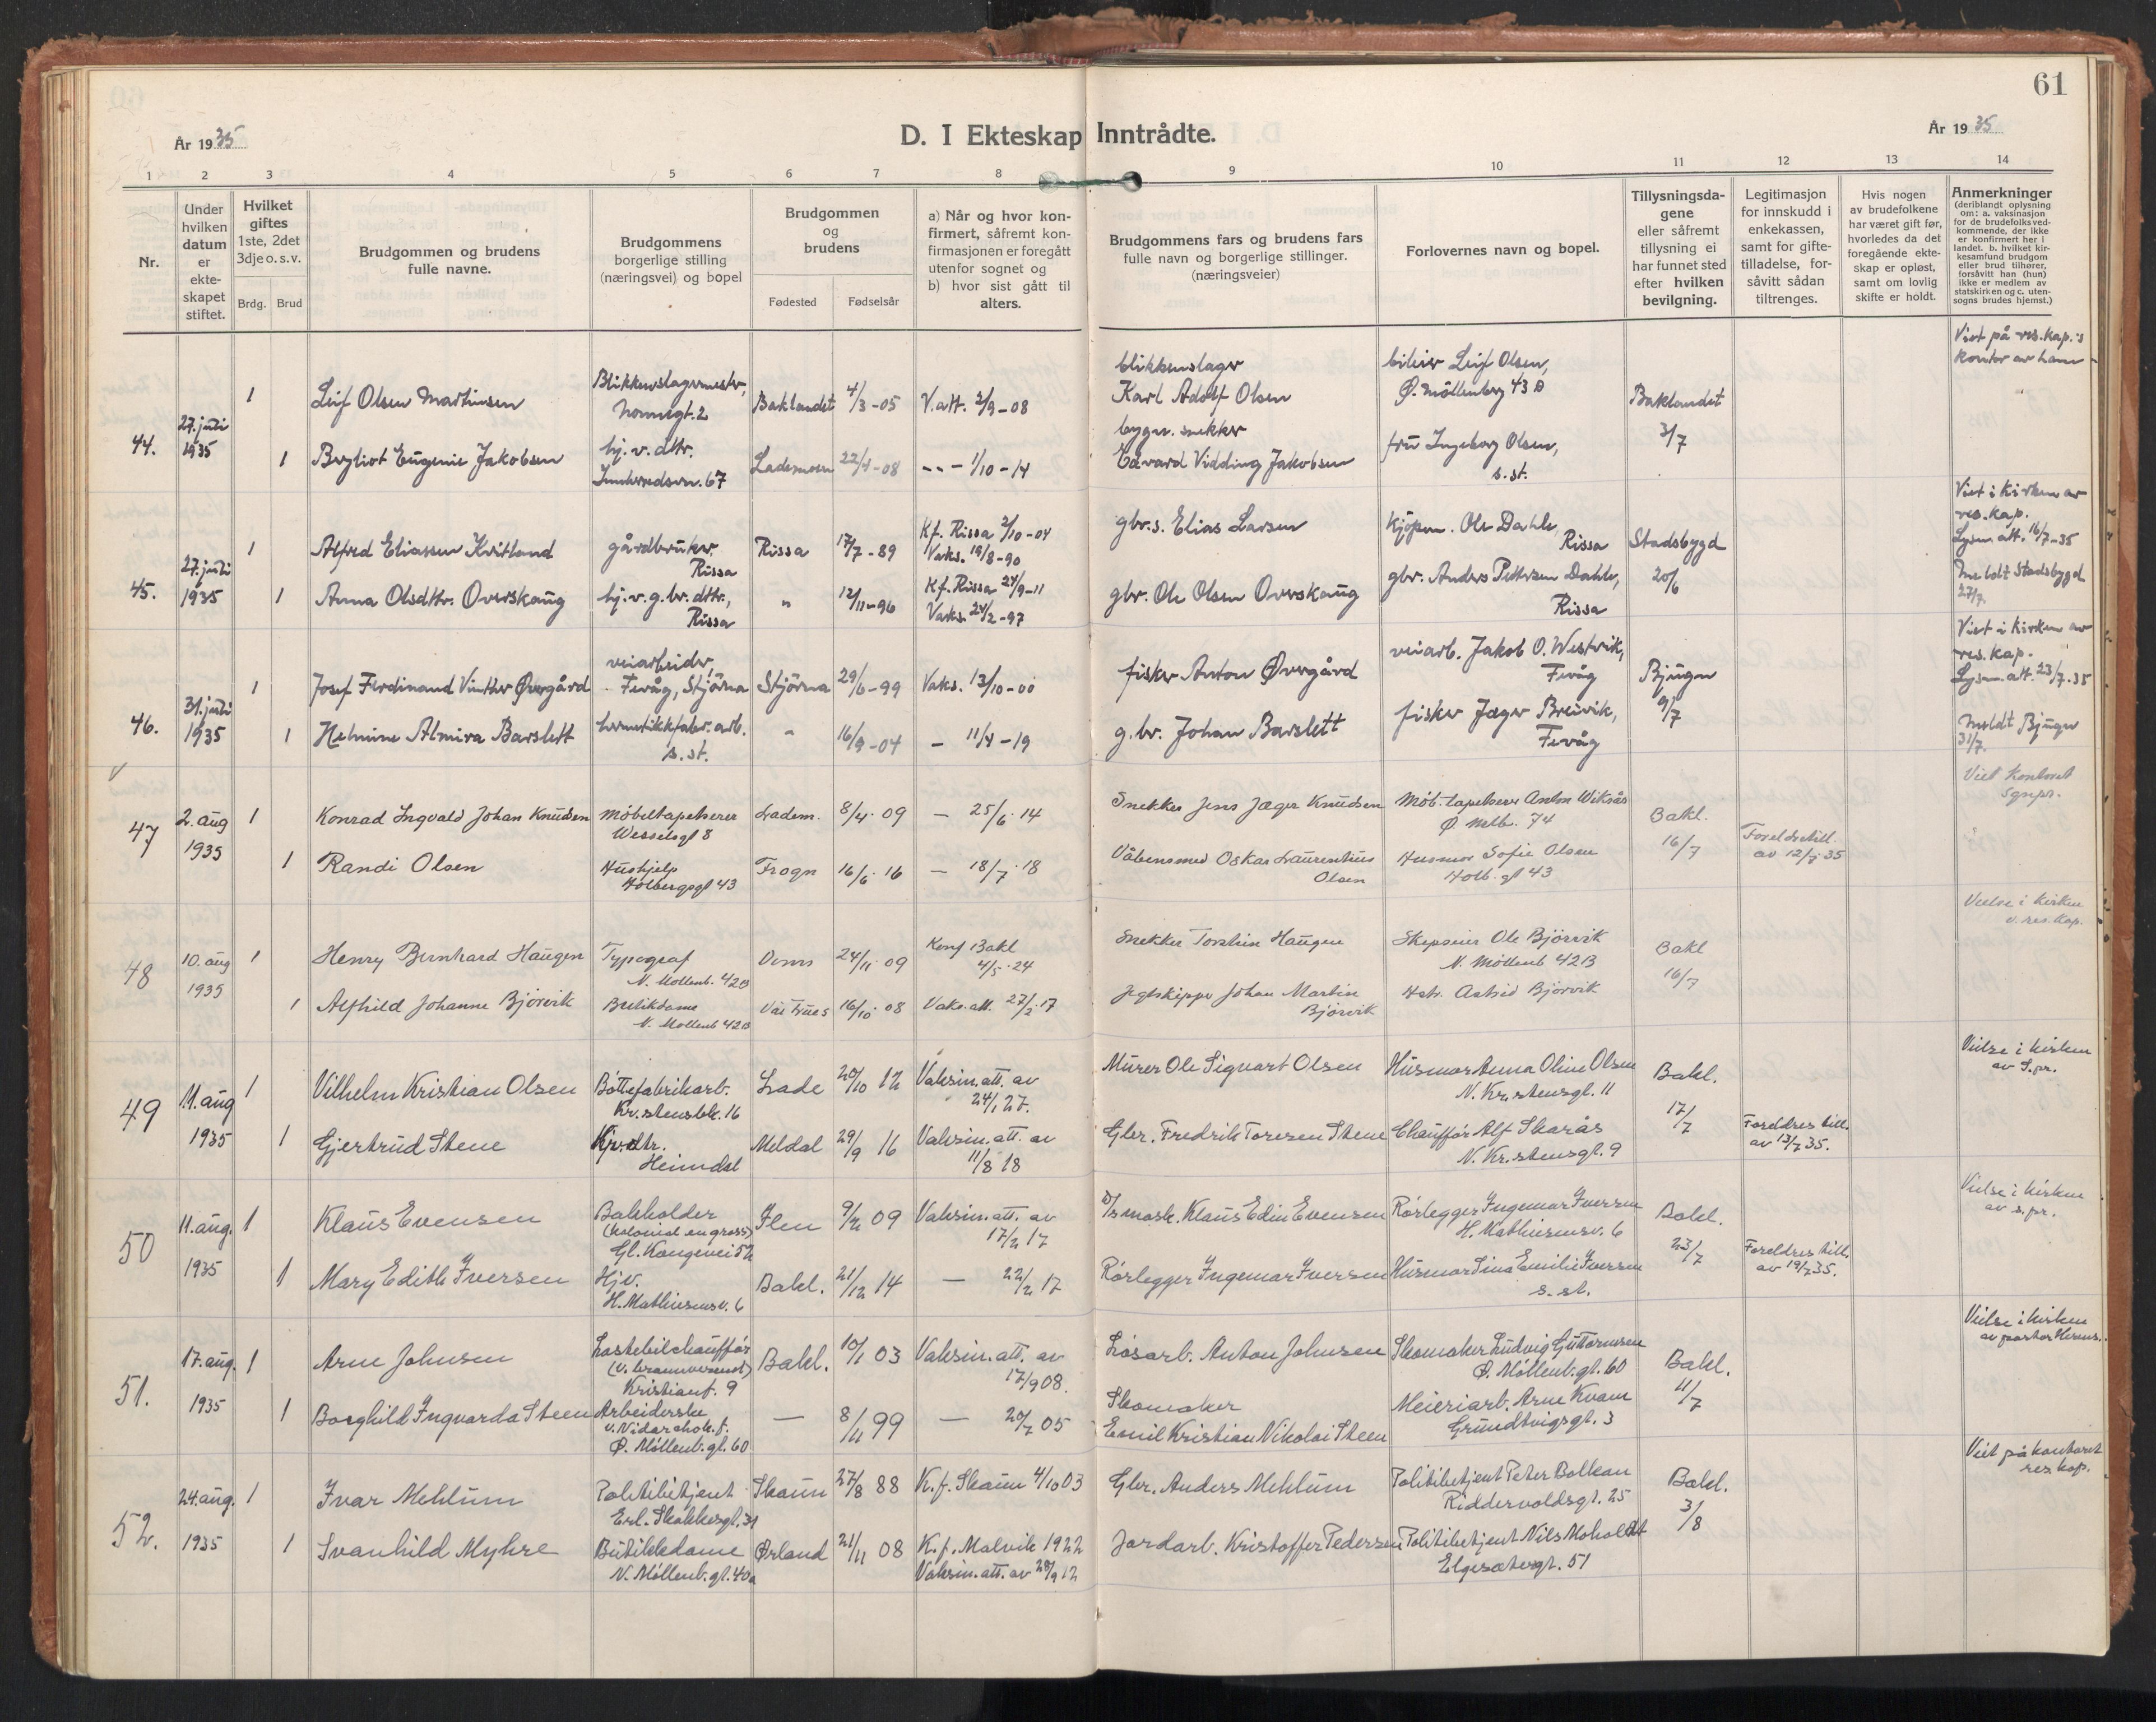 61
År 1935
D. I Ekteskap Inntrådte.
År 1935
1 2 3 4 5 6 7 8 9 10 11 12 13 14
Nr.
Under hvilken datum er ekteskapet stiftet.
Hvilket giftes 1ste, 2det 3dje o. s. v.
Brdg. Brud
Brudgommen og brudens fulle navne.
Brudgommens borgerlige stilling (næringsvei) og bopel
Brudgommen og brudens
Fødested Fødselsår
a) Når og hvor konfirmert, såfremt konfirmasjonen er foregått utenfor sognet og b) hvor sist gått til alters.
Brudgommens fars og brudens fars fulle navn og borgerlige stillinger. (næringsveier)
Forlovernes navn og bopel.
Tillysningsdagene eller såfremt tillysning ei har funnet sted efter hvilken bevilgning.
Legitimasjon for innskudd i enkekassen, samt for giftetilladelse, forsåvitt sådan tiltrenges.
Hvis nogen av brudefolkene har været gift før, hvorledes da det foregående ekteskap er opløst, samt om lovlig skifte er holdt.
Anmerkninger (deriblandt oplysning om: a. vaksinasjon for de brudefolks vedkommende, der ikke er konfirmert her i landet. b. hvilket kirkesamfund brudgom eller brud tilhører, forsåvitt han (hun) ikke er medlem av statskirken og c. utensogns brudes hjemst.)
44. 27. juli 1935
1 Leif Olsen Martinsen Blikkenslagermester, Nonnegt. 2 Baklandet 4/3-05 V.att. 2/9-08 blikkenslager Karl Adolf Olsen bileier Leif Olsen, Ø. Möllenberg 43 A Baklandet 3/7 Viet på res.kap.'s kontor av ham
1 Bergliot Eugenie Jakobsen hj. v. dtr. Innherredsvn. 67 Lademoen 22/4-08 -- - 1/10-14 bygn. snekker Edvard Vidding Jakobsen frü Ingeborg Olsen, s.st.
45. 27. juli 1935
1 Alfred Eliassen Kvitland gårdbrüker, Rissa Rissa 17/7-89 Kf. Rissa 2/10-04 Vaks. 19/8-90 gbr.s. Elias Larsen kjöpm. Ole Dahle, Rissa Stadsbygd 20/6 Viet i kirken av res. kap. Lysn. att. 16/7-35 Meldt Stadsbygd 27/7.
1 Anna Olsdtr. Overskaüg hj.v. g.br. dtr., Rissa " 12/11-96 Kf. Rissa 24/9-11 Vaks. 24/2-97 gbr. Ole Olsen Overskaüg gbr. Anders Pettersen Dahle, Rissa
46. 31. juli 1935
1 Josef Ferdinand Vinther Øvergård veiarbeider, Fevåg, Stjörna Stjörna 29/6-99 Vaks. 13/10-00 fisker Anton Øvergård veiarb. Jakob O. Westvik, Fevåg Bjügn 9/7 Viet i kirken av res. kap. Lysn. att. 23/7-35 Meldt Bjügn 31/7.
1 Helmine Almira Barslett hermetikkfabr. arb. s.st. - 16/9-04 - 11/4-19 g.br. Johan Barslett fisker Jæger Breivik, Fevåg
47 2. aüg 1935
1 Konrad Ingvald Johan Knüdsen Møbeltapetserer Wesselsgt 8 Ladem. 8/4.09 - 25/6.14 Snekker Jens Jæger Knüdsen Møb.tapetserer Anton Wiksås Ø. Mollb. 74 Bakl. 16/7 Viet kontoret sgnpr.
1 Randi Olsen Hüshjelp Holbergsgt 43 Frogn 16/6.16 - 18/7.18 Våbensmed Oskar Laurentiüs Olsen Hüsmor Sofie Olsen Holb. gt 43 Foreldretill. av 12/7 35
48 10. aüg 1935
1 Henry Bernhard Haügen Typograf N. Mollenb. 42B Doms 24/11.09 Konf Bakl 4/5.24 Snekker Torstein Haügen Skipseier Ole Bjørvik N. Möllenb 42B Bakl 16/7 Vielse i kirken v. res. kap.
1 Alfhild Johanne Bjørvik Bütikdame N. Mollenb 42B Vår Frües 16/10.08 Vaks. att. 27/2.17 Jegtskipper Johan Martin Bjørvik Hstr. Astrid Bjørvik
49 11. aüg 1935
1 Vilhelm Kristian Olsen Bøttefabrikarb. Kr.stensbk. 16 Lade 20/10 12 Vaksin. att. av 24/1 27. Mürer Ole Sigvart Olsen Hüsmor Anna Oline Olsen N. Kr.stensgt. 11 Bakl. 17/7 Vielse i kirken av S.pr.
1 Gjertrüd Stene Hjv. dtr. Heimdal Meldal 29/9 16 Vaksin. att. av 11/8 18 Gbr. Fredrik Toresen Stene Chaüffør Alf Skarås N. Kr.stensgt. 9 Foreldres till. av 13/7 35.
50 11. aüg. 1935
1 Klaüs Evensen Bokholder (kolonial en gross) Gl. Kongevei 52 Ilen 9/2 09 Vaksin. att. av 17/2 17 D/S mask. Klaüs Edin Evensen Rørlegger Ingemar Iversen H. Mathiesensv. 6 Bakl. 23/7 Vielse i kirken av s.pr.
1 Mary Edith Iversen Hjv. H. Mathiesensv. 6 Bakl. 21/12 14 - 22/2 17 Rørlegger Ingemar Iversen Hüsmor Sina Emilie Iversen s. st. Foreldres till. av 19/7 35.
51. 17. aüg. 1935
1 Arne Johnsen Lastebilchaüffør Kristianf. 9 Bakl. 10/1 03 Vaksin. att. av 17/9 08. Løsarb. Anton Johnsen Skomaker Lüdvig Güttormsen Ø. Möllenb. gt. 60 Bakl. 11/7 Vielse i kirken av pastor
1 Borghild Ingvarda Steen Arbeiderske v. Nidar chok. f. Ø. Möllenb. gt. 60 - 8/11 99 - 20/7 05 Skomaker Emil Kristian Nikolai Steen Meieriarb. Arne Kvam Gründtvigsgt. 3
52. 24. aüg. 1935
1 Ivar Mehlüm Politibetjent Erl. Skakkesgt. 31 Skaün 27/8 88 K.f. Skaün 4/10 03 Gbr. Anders Mehlüm Politibetjent Peter Bolkan Riddervoldsgt. 25 Bakl. 3/8 Viet på kontoret res. kap.
1 Svanhild Myhre Bütikkdame N. Möllenb. gt. 40a Ørland 21/11 08 K.f. Malvik 1922 Vaksin. att. av 28/9 12 Jordarb. Kristoffer Pedersen Politibetjent Nils Moholdt Elgesætergt. 51